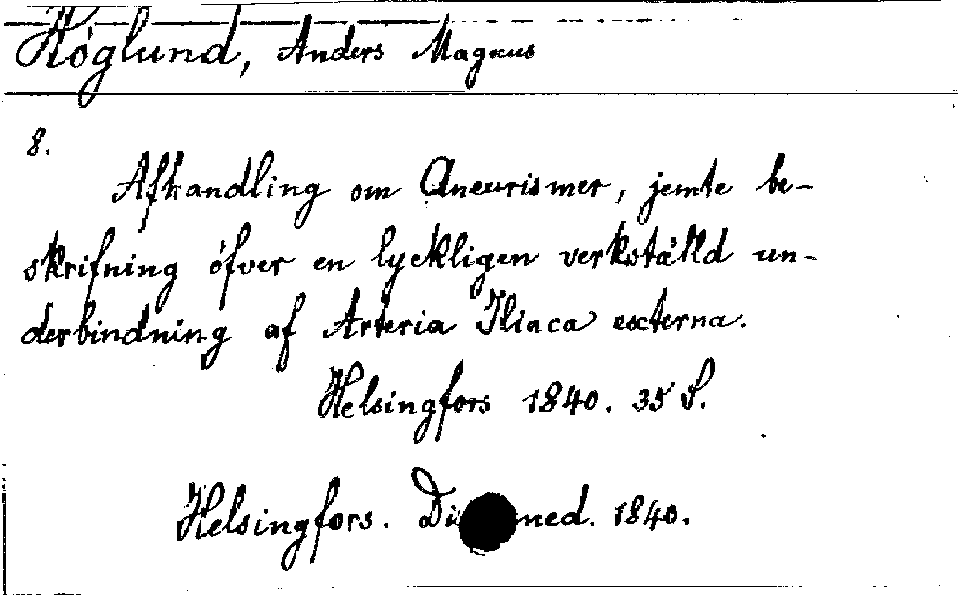 Höglund, Anders Magnus
8.
Afhandling om Aneurismer, jemte be-
skrifning öfver en lyckligen verkställd un-
derbindning af Arteria Iliaca externa.
Helsingfors 1840. 35 S.
Helsingfors. med. 1840.